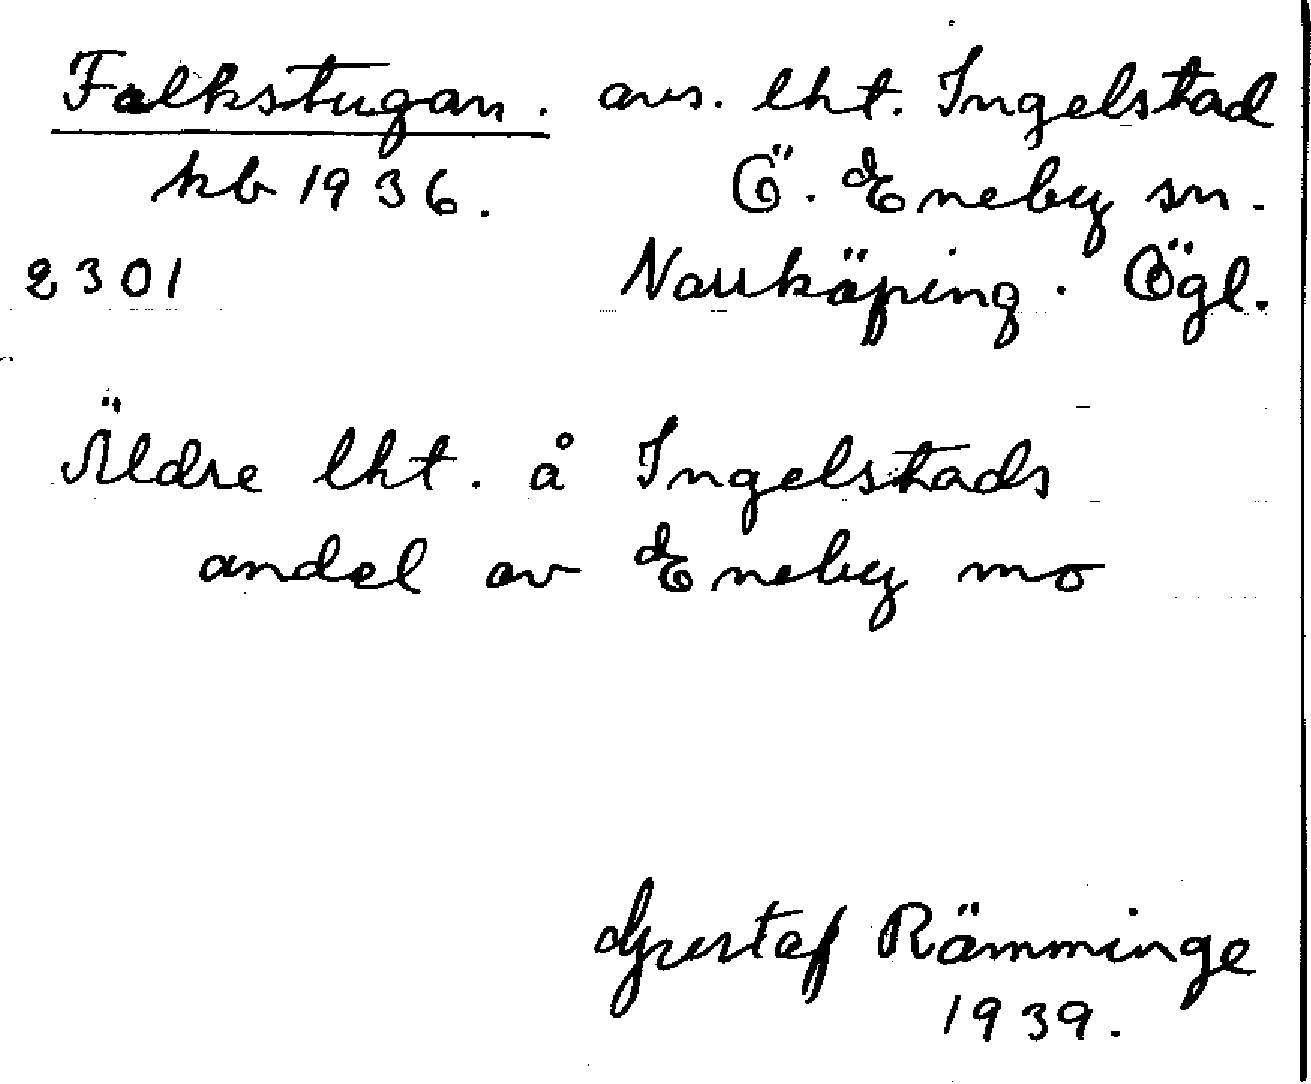 Folkstugan. avs. lht. Ingelstad
kb 1936. Ö. Eneby sn.
2301 Norrköping. Ögl.
Äldre lht. å Ingelstads
andel av Eneby mo
Gustaf Rämminge
1939.